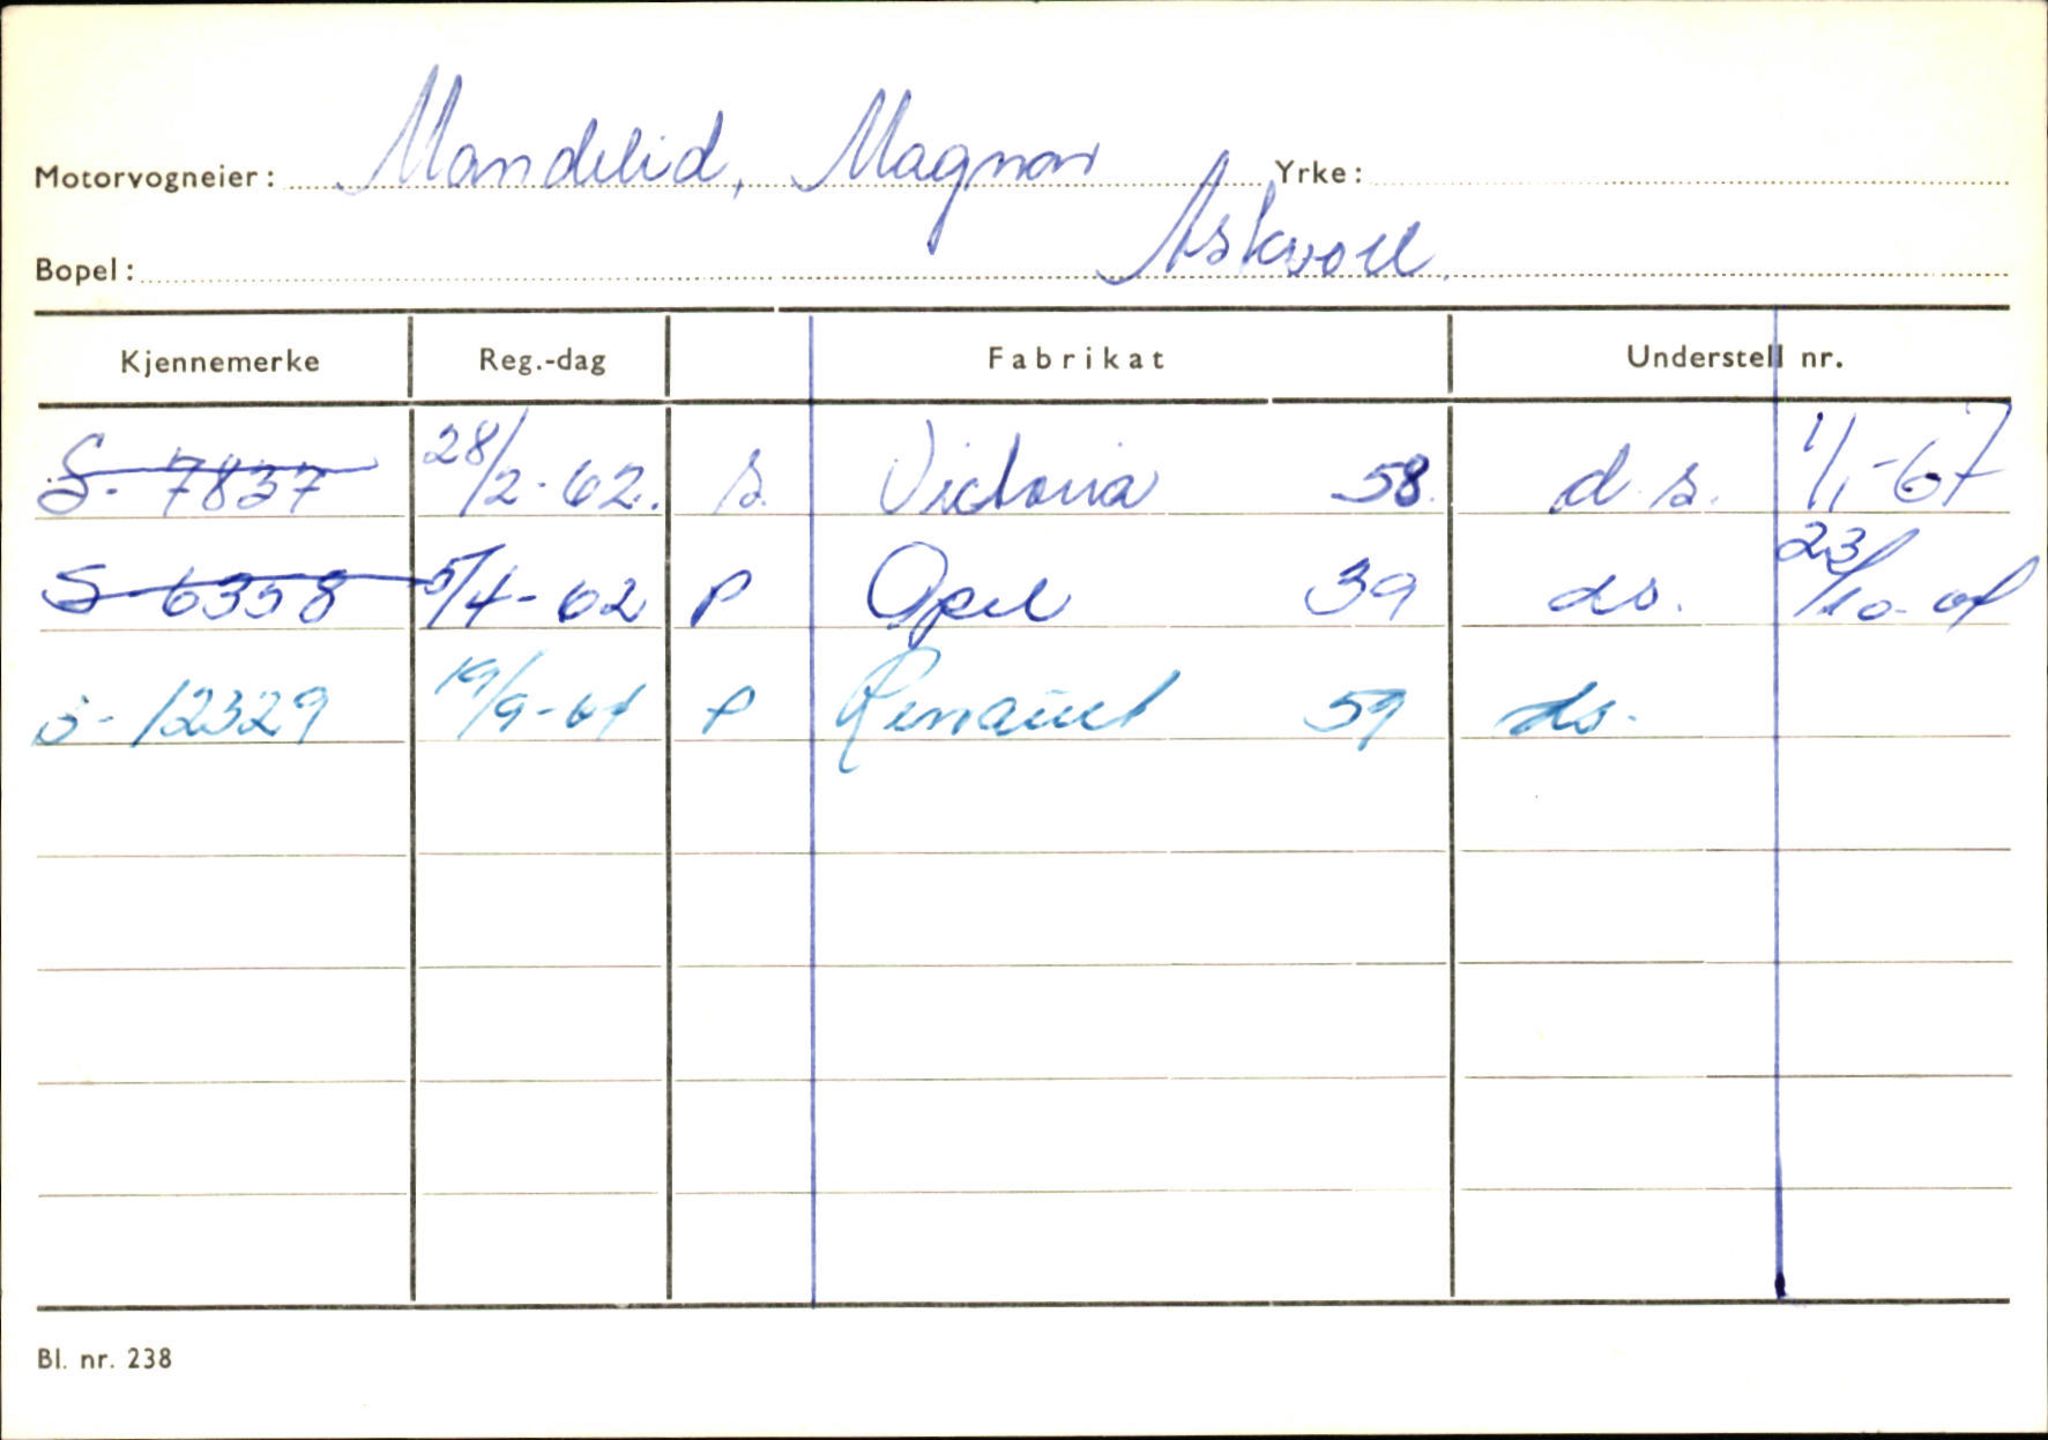 Motorvogneier: Mandelid, Magnar Yrke:
Bopel: Askvoll.
Kjennemerke Reg.-dag Fabrikat Understell nr.
S- 7837 28/2-62. s. Victoria 58. d.s. 1/1-67
S 6358 5/4-62 P Opel 39 ds. 23/10-64
S- 12329 19/9-64 P Renault 59 ds.
Bl. nr. 238